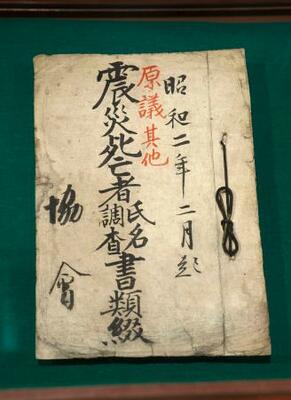 昭和二年二月起
原議其他
震災死亡者氏名調査書類綴
協會